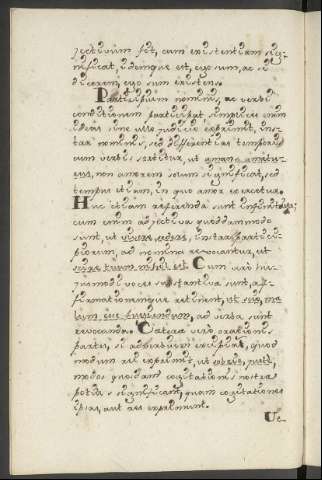 jectivum fit, cum existentiam sig-
nificat, idemque est, ego sum, ac si
dicerem, ego sum existens.
Participium nominis, ac verbi
conditionem participat simplicem enim
ideam sine ullo judicio exprimit, ins-
tar nominis, sed differentias temporis
cum verbis sortitur, ut amans amatu-
rus, non amorem solum significat, sed
tempus etiam, in quo amor exercetur.
Huc etiam referenda sunt infinitiva;
cum enim adjectiva quodammodo
sunt, ut vivere, instar partici-
piorum, ad nomina revocantur, ut
scire tuum nihil est. Cum vero hu-
jusmodi voces substantiva sunt, af-
firmationemque retinent, ut
ad verba sunt
revocanda. Cætera vero orationis
partes, si adverbium excipias, quod
modum rei exprimit, ut
modos quosdam cogitationis nostræ
potius significant, quam cogitationes
ipsas, aut res exprimunt.